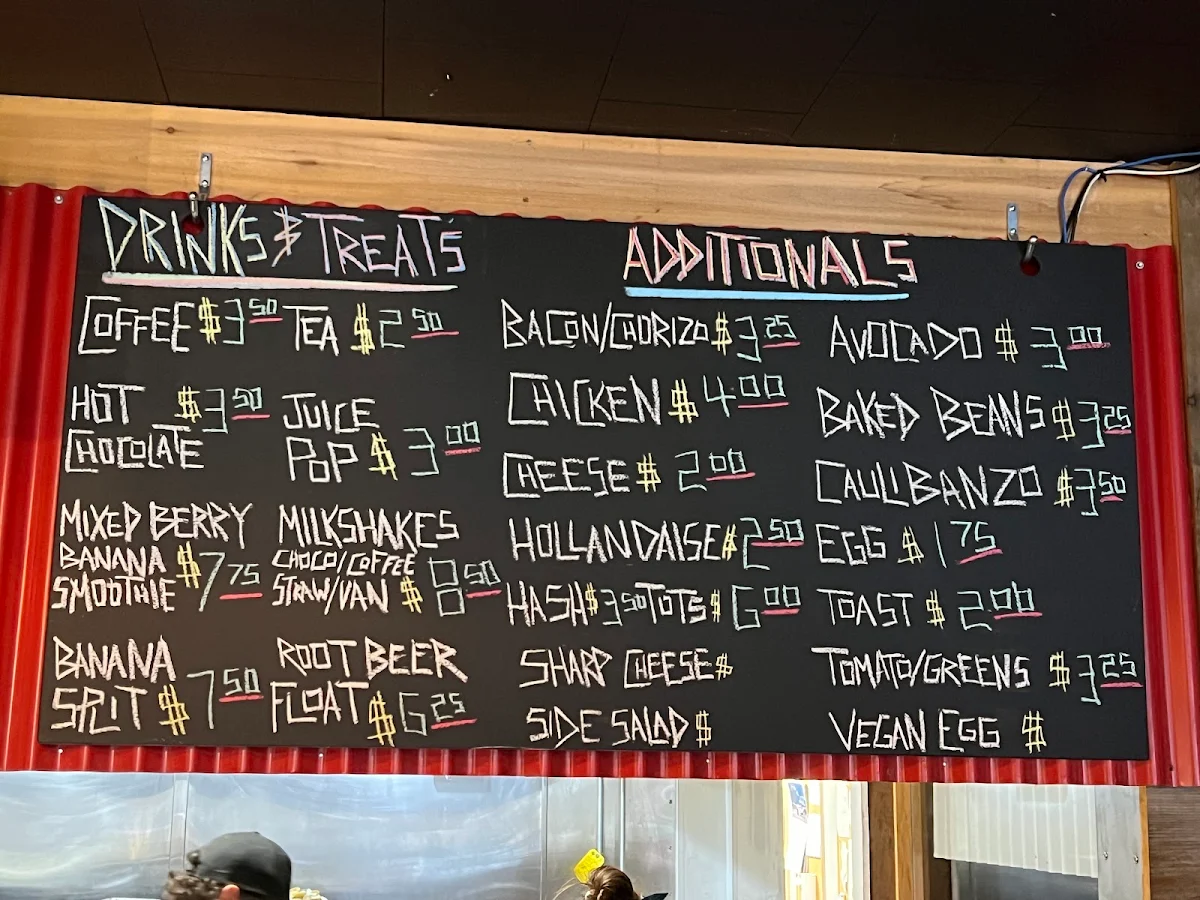 DRINKS & TREATS
COFFEE $3.50 TEA $2.50
HOT $3.50
CHOCOLATE
JUICE
POP $3.00
MIXED BERRY
BANANA $7.75
SMOOTHIE
MILKSHAKES
CHOCO/COFFEE
STRAW/VAN $8.50
BANANA
SPLIT $7.50
ROOT BEER
FLOAT $6.25
ADDITIONALS
BACON/CHORIZO $3.25
CHICKEN $4.00
CHEESE $2.00
HOLLANDAISE $2.50
HASH $3.50 TOTS $6.00
SHARP CHEESE $
SIDE SALAD $
AVOCADO $3.00
BAKED BEANS $3.25
CAULIBANZO $3.50
EGG $1.75
TOAST $2.00
TOMATO/GREENS $3.25
VEGAN EGG $